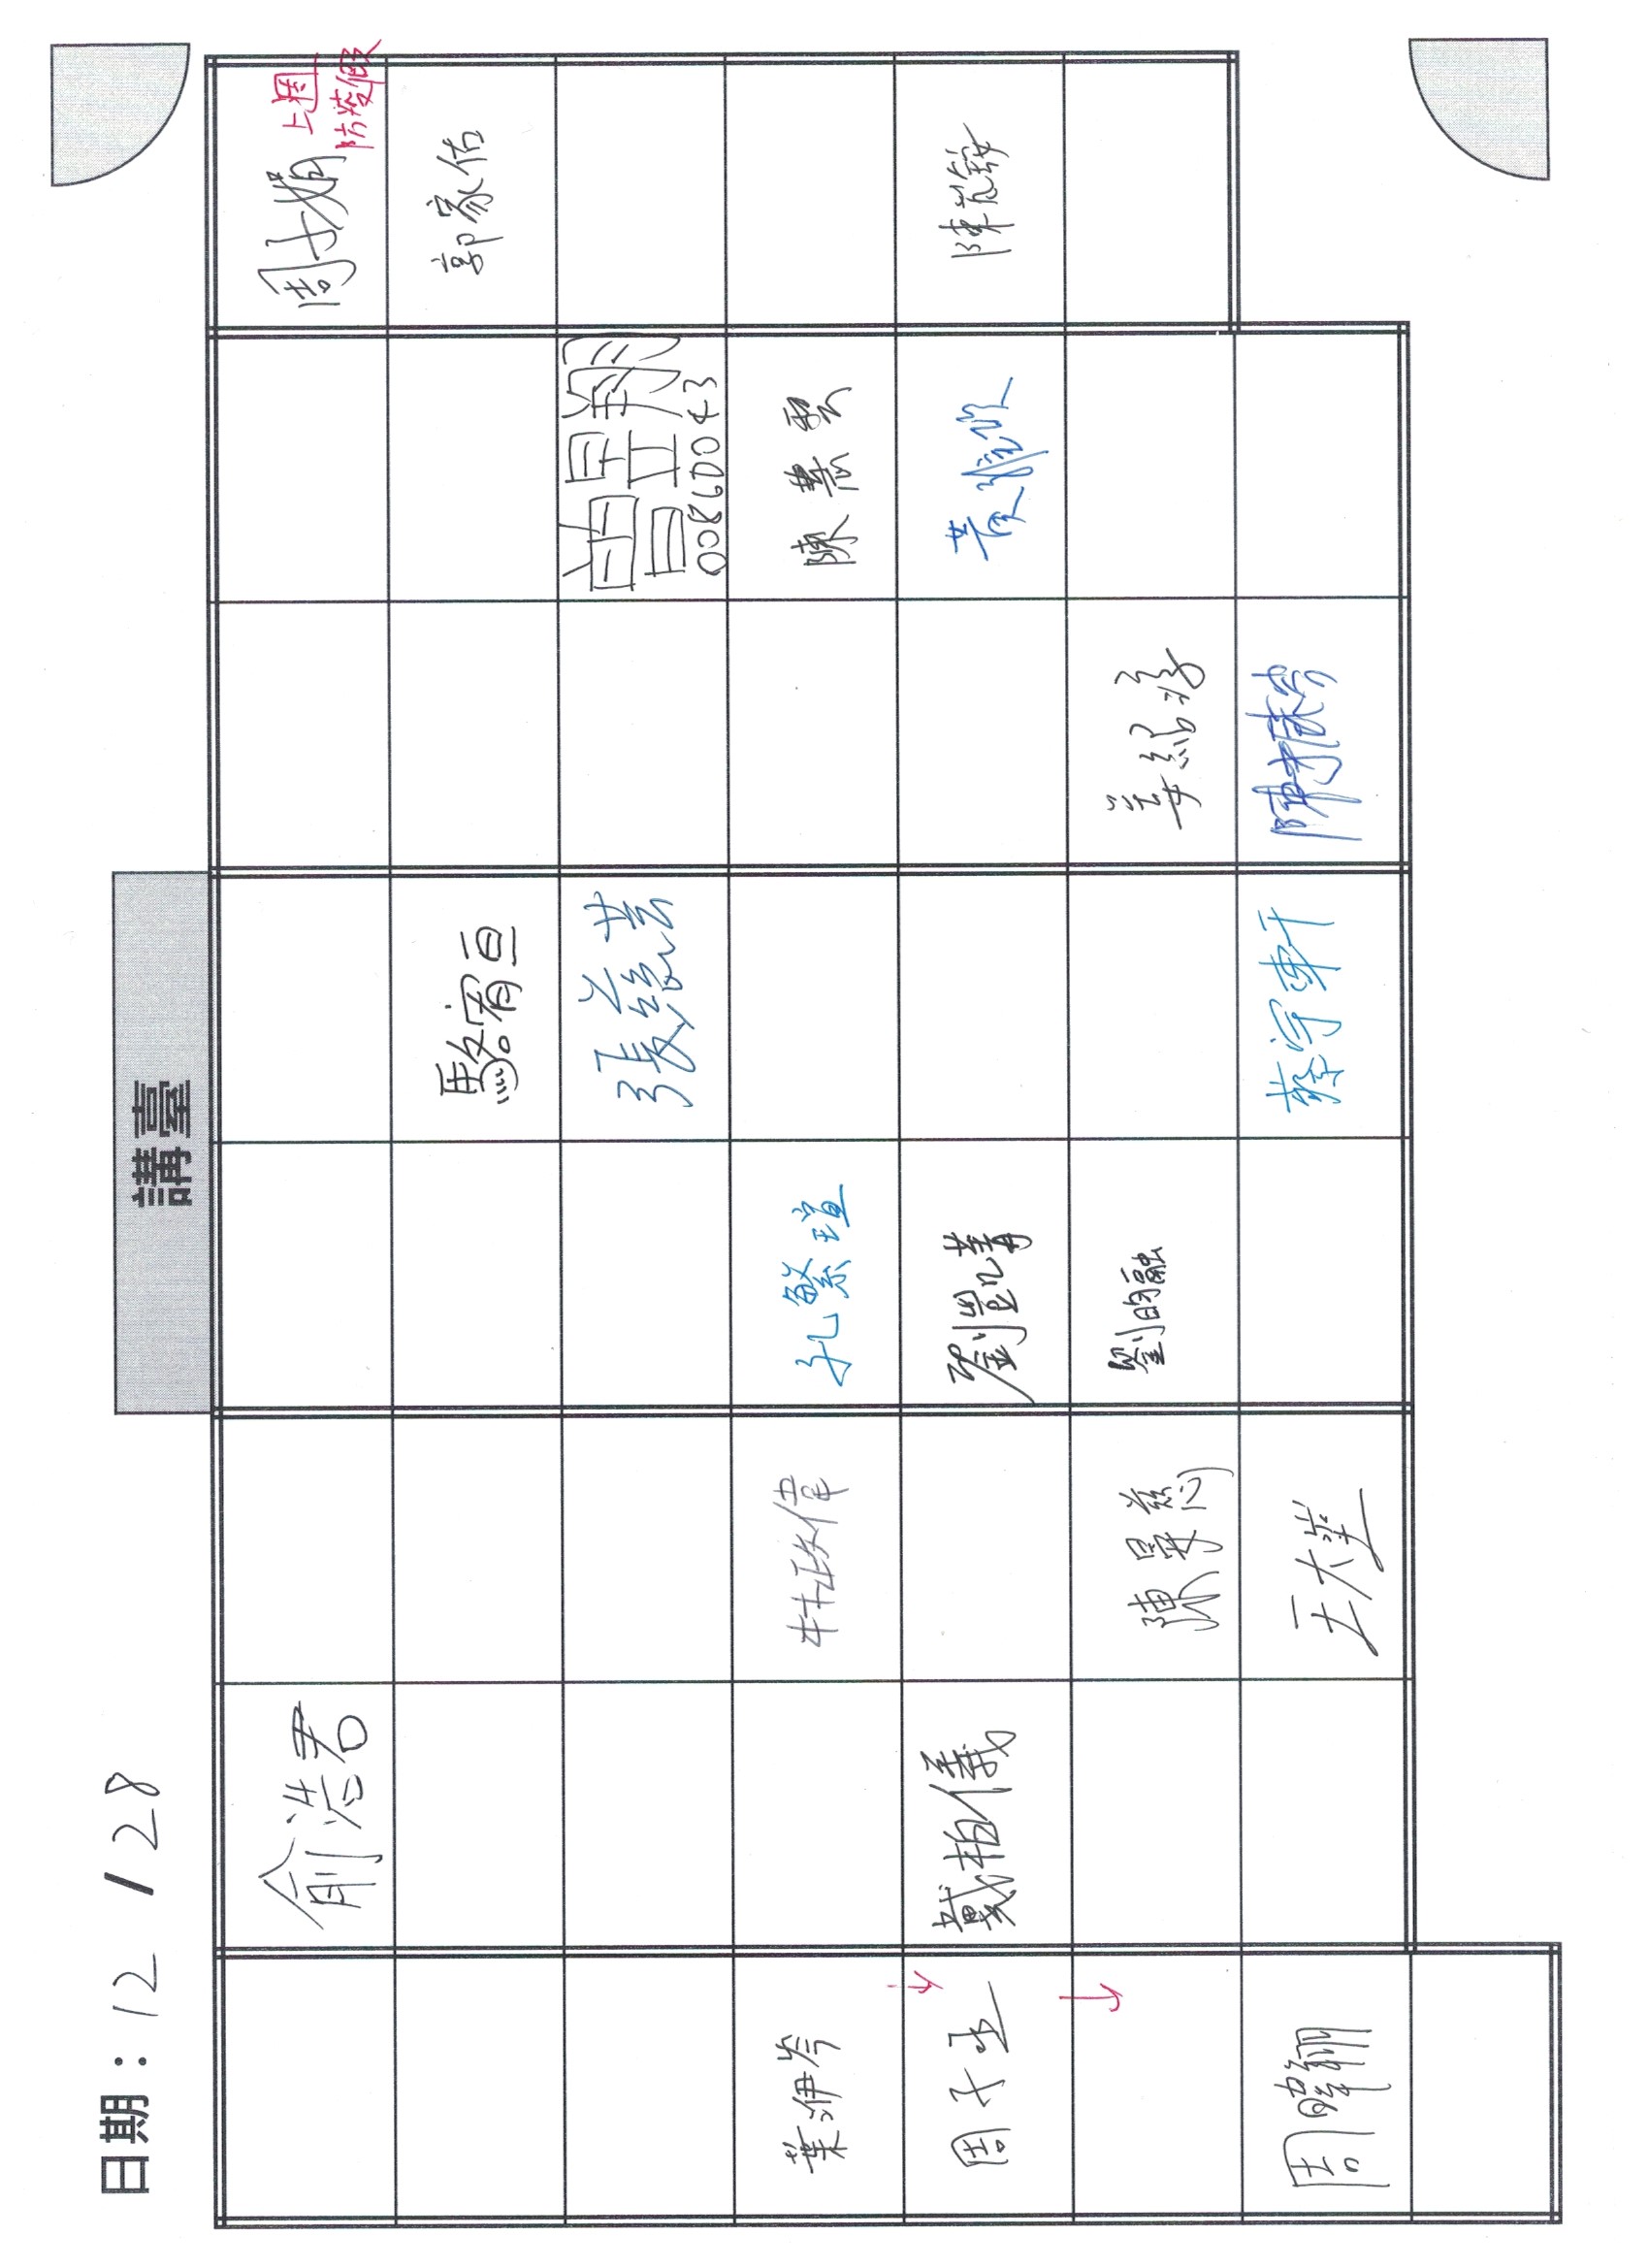 日期：12 / 28
講臺
俞浩君
周子娟
上週
防疫假
駱宥亘
郭家佑
張慈芸
曾昱翔
00860043
葉洢岑
林政偉
孔繁瑄
陳慧雲
周子丞
戴柏儀
劉凱菁
黃雅欣
陳
陳旻慈
劉昀融
姜紹淳
周暐翔
王大
蔡宇軒
陳